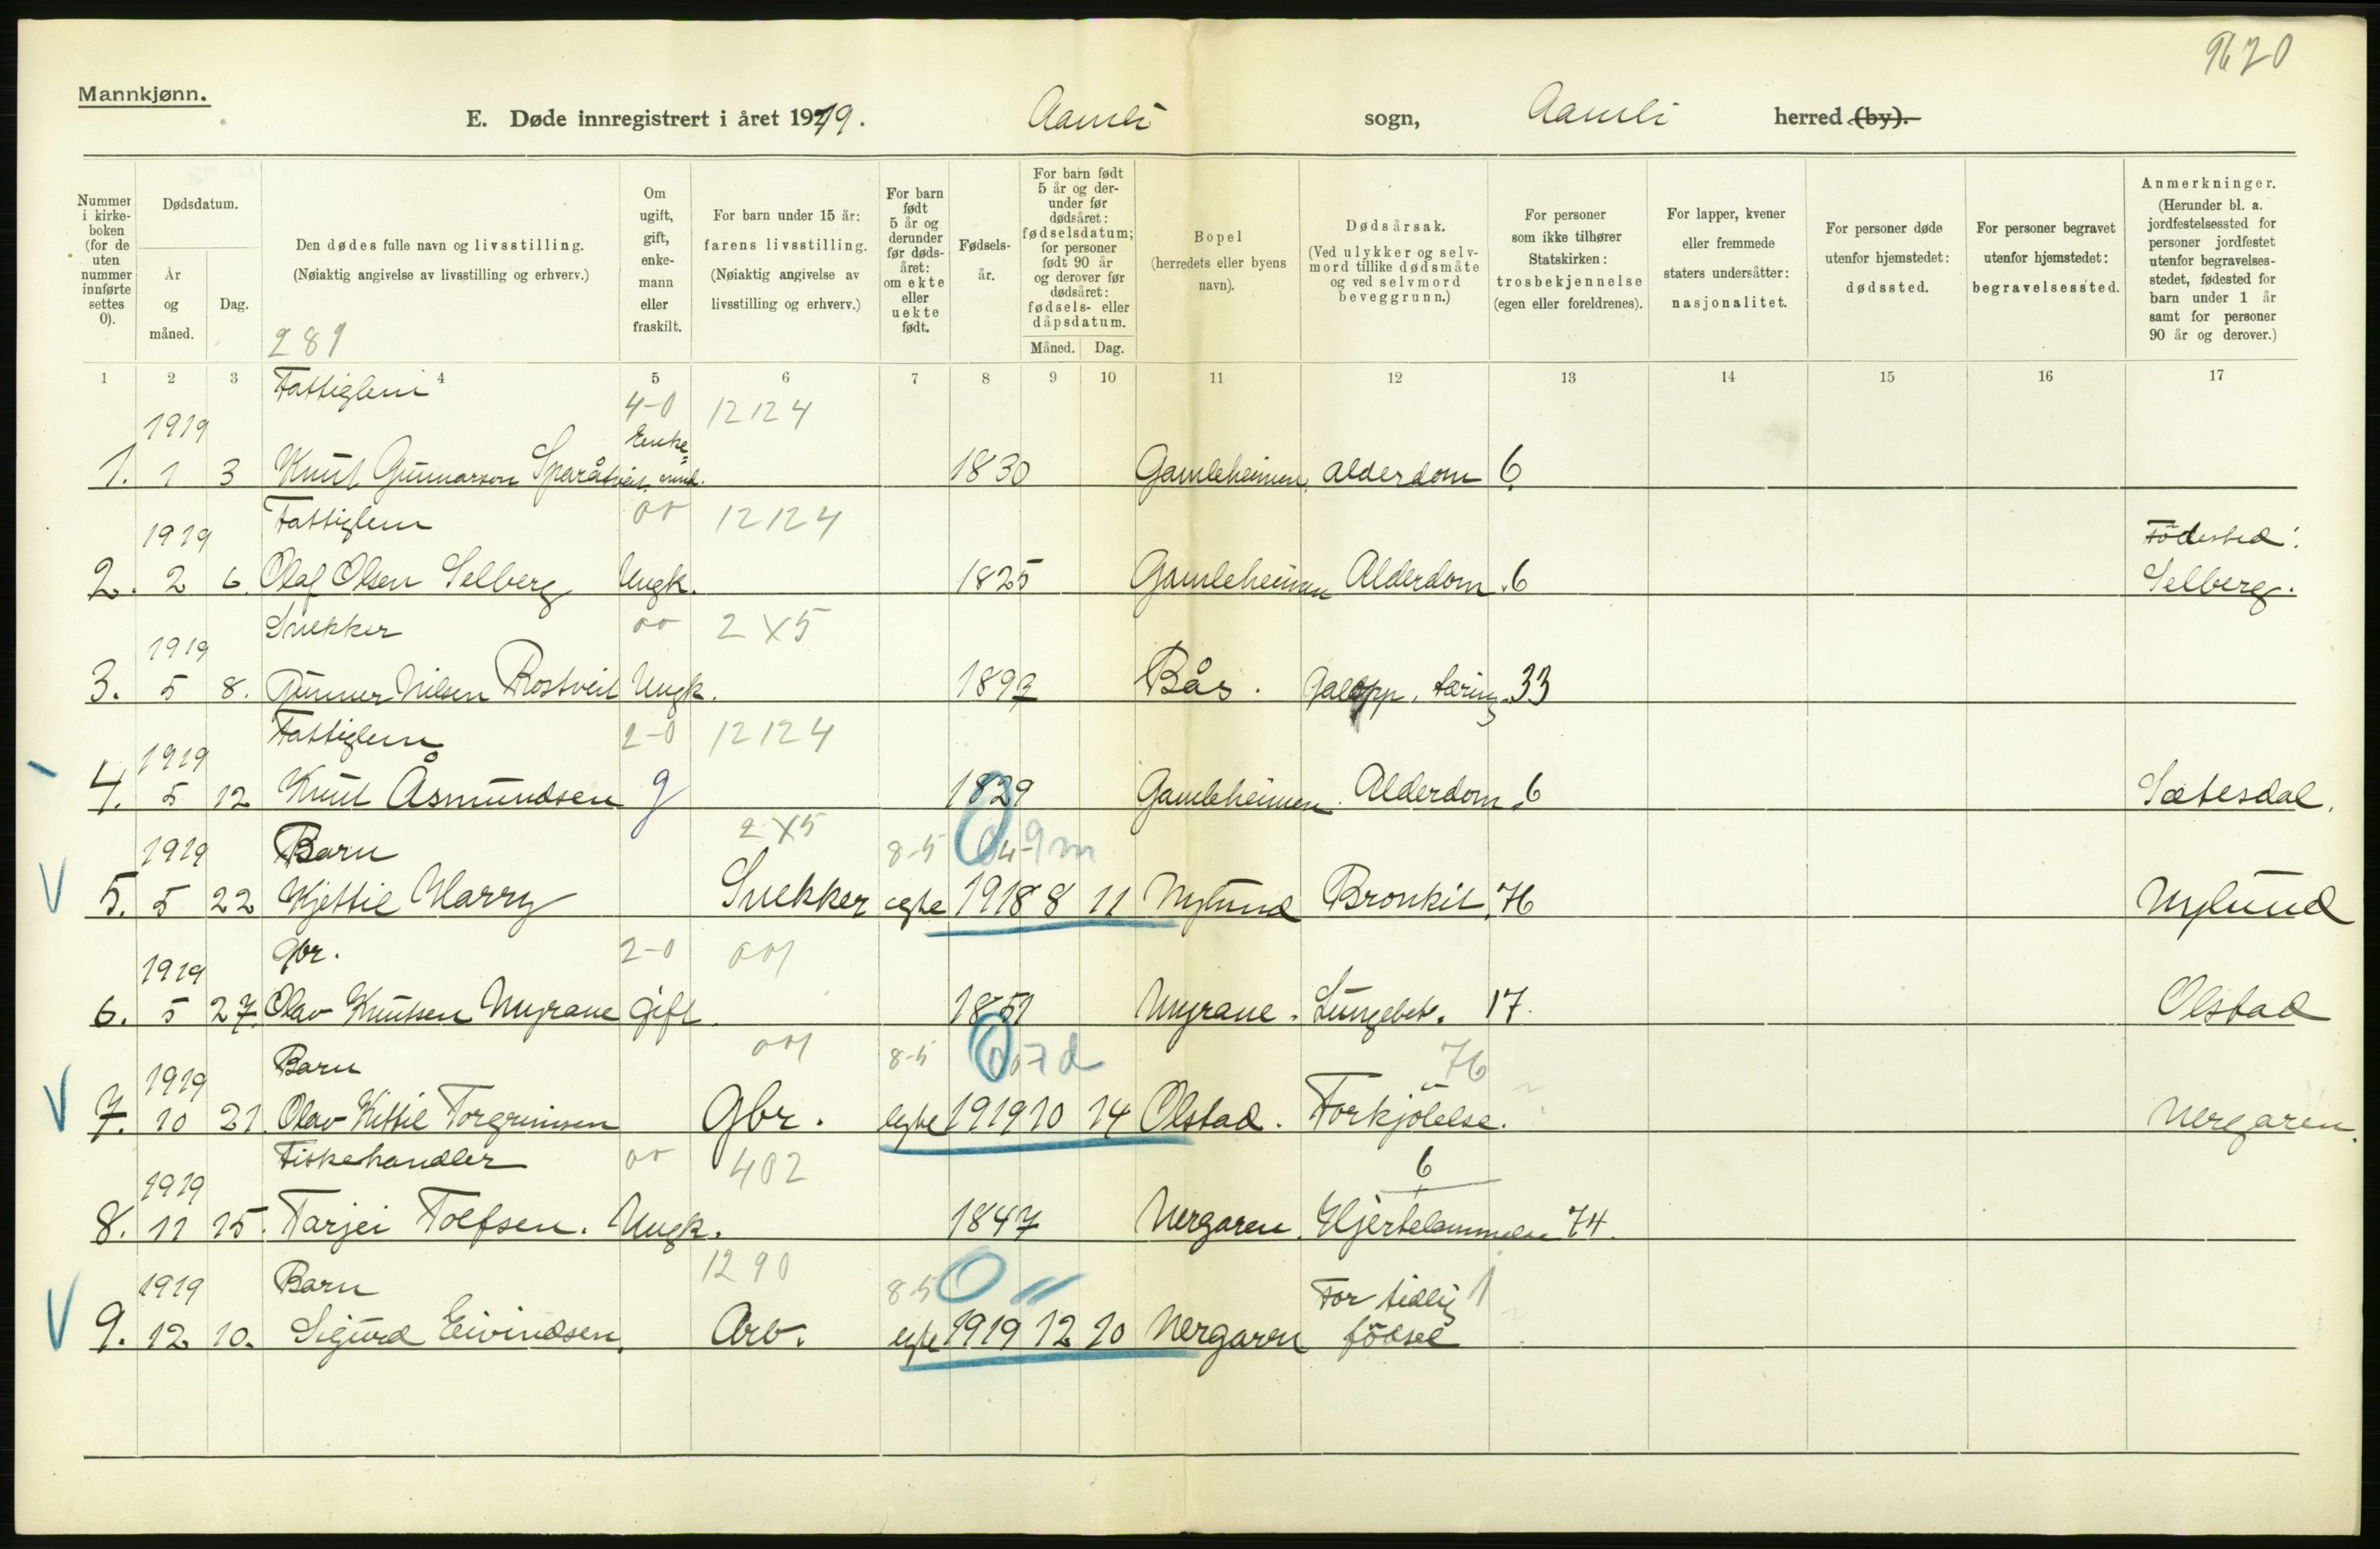 9620
Mannkjønn.
E. Døde innregistrert i året 1919. Aamli sogn, Aamli herred (by).
Nummer i kirke- boken (for de uten nummer innførte settes 0).
Dødsdatum.
År og måned.
Dag.
Den dødes fulle navn og livsstilling.
(Nøiaktig angivelse av livsstilling og erhverv.)
281
Om ugift, gift, enke- mann eller fraskilt.
For barn under 15 år:
farens livsstilling.
(Nøiaktig angivelse av livsstilling og erhverv.)
For barn født 5 år og derunder før døds- året: om ekte eller uekte født.
Fødsels- år.
For barn født 5 år og der- under før dødsåret: fødselsdatum; for personer født 90 år og derover før dødsåret: fødsels- eller dåpsdatum.
Måned. Dag.
Bopel
(herredets eller byens navn).
Dødsårsak.
(Ved ulykker og selv- mord tillike dødsmåte og ved selvmord beveggrunn.)
For personer som ikke tilhører Statskirken: trosbekjennelse (egen eller foreldrenes).
For lapper, kvener eller fremmede staters undersåtter: nasjonalitet.
For personer døde utenfor hjemstedet: dødssted.
For personer begravet utenfor hjemstedet: begravelsessted.
Anmerkninger.
(Herunder bl. a. jordfestelsessted for personer jordfestet utenfor begravelses- stedet, fødested for barn under 1 år samt for personer 90 år og derover.)
1 2 3 4 5 6 7 8 9 10 11 12 13 14 15 16 17
Fattiglem
4-0 12124
1919 Enke=
1. 1 3 Knut Gunnarson Sparåtveit mnd. 1830 Gamleheimen. Alderdom 6
1919 Fattiglem 00 12124 Födested:
2. 2 6. Olaf Olsen Selberg Ungk. 1825 Gamleheimen Alderdom. 6 Selberg.
1919 Snekker 00 2X5
3. 5 8. Gunner Nilsen Rostveit Ungk. 1893 Bås. Galopp. tæring. 33
1919 Fattiglem 2-0 12124
4. 5 12 Knut Åsmundsen g 1829 Gamleheimen. Alderdom. 6 Sætesdal.
1919 Barn 2X5 8-5 0 4-9m
5. 5 22 Kjettil Harry Snekker egte 1918 8 11 Nylund Bronkit. 76 Nylund
1919 gbr. 2-0 001
6. 5 27. Olav Knutsen Myrane gift. 1851 Myrane. Lungebet. 17. Olstad
1919 Barn 001 8-5 0 0-7d 76
7. 10 21. Olav Kittil Torgrimsen Gbr. egte 1919 10 14 Olstad. Forkjölelse. Nergaren.
1919 Fiskehandler 00 402 6
8. 11 15. Tarjei Tolfsen. Ungk. 1847 Nergaren. Hjertelammelse 74.
1919 Barn 1290 8-5 0 For tidlig 1
9. 12 10. Sigurd Eivindsen. Arb. egte 1919 12 10 Nergaren födsel